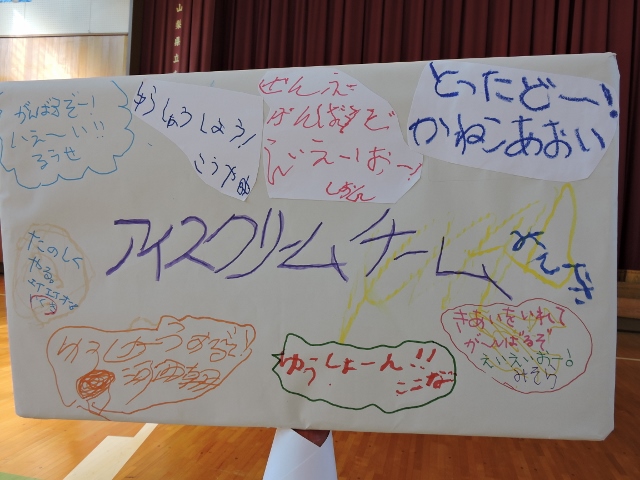 がんばるぞー!
いえ〜い!!
ろうせ
ゆうしょうしよう!
こうや
ぜんえ
がんばるぞ
えいえーおー!
とったどー!
かねこあおい
アイスクリームチーム
たのしく
やる。
ゆうしょーうするぞ!
ゆうしょーん!!
ここな
きあいをいれて
がーんばるぞ
えいえいおー!
みそら